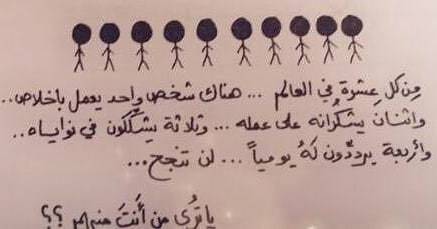 مِن كل عشرة في العالم ... هناك شخص واحد يعمل بإخلاص..
واثنان يشكُرانه على عمله ... وثلاثة يشكّكون في نواياه..
وأربعة يردّدون لهُ يومياً ... لن تنجح ...
يا تُرى من أنتَ منهم ؟؟